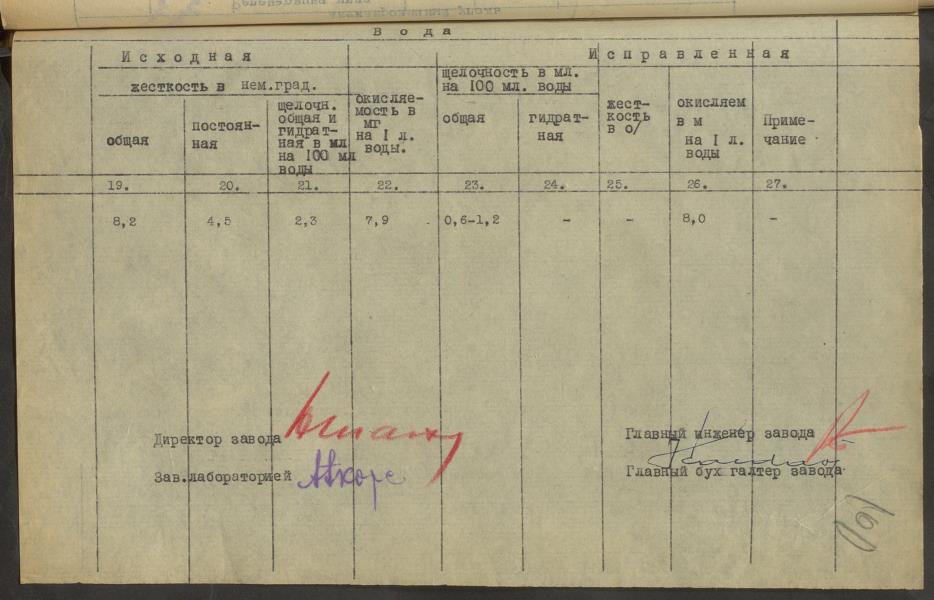 Вода
Исходная
Исправленная
жесткость в нем.град.
щелочность в мл.
на 100 мл. воды
общая
постоян-
ная
щелочн.
общая и
гидрат-
ная в мл
на 100 мл
воды
окисляе-
мость в
мг
на I л.
воды.
общая
гидрат-
ная
жест-
кость
в о/
окисляем
в м
на I л.
воды
Приме-
чание
19. 20. 21. 22. 23. 24. 25. 26. 27.
8,2 4,5 2,3 7,9 0,6-1,2 - - 8,0 -
Директор завода
Главный инженер завода
Зав.лабораторией
Главный бух галтер завода